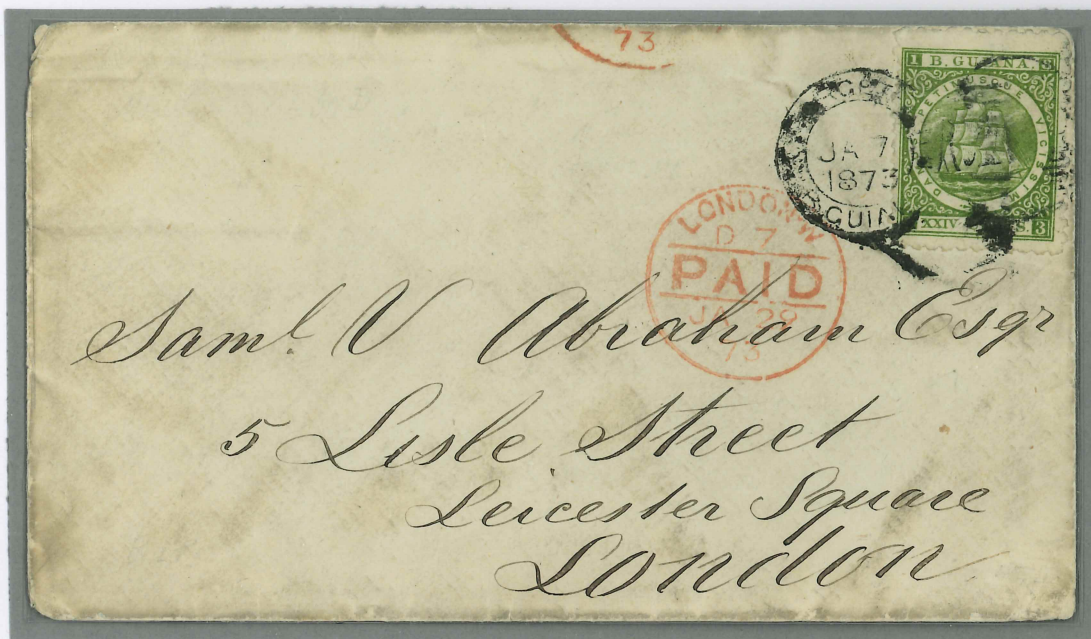 73
1 B. GUIANA. 8
DAMUS PETIMUSQUE VICISSIM
XXIV
S. 3
JA 7
1873
GUIN
LONDON W
D 7
PAID
JA 29
73
Saml. V Abraham Esqr
5 Lisle Street
Leicester Square
London